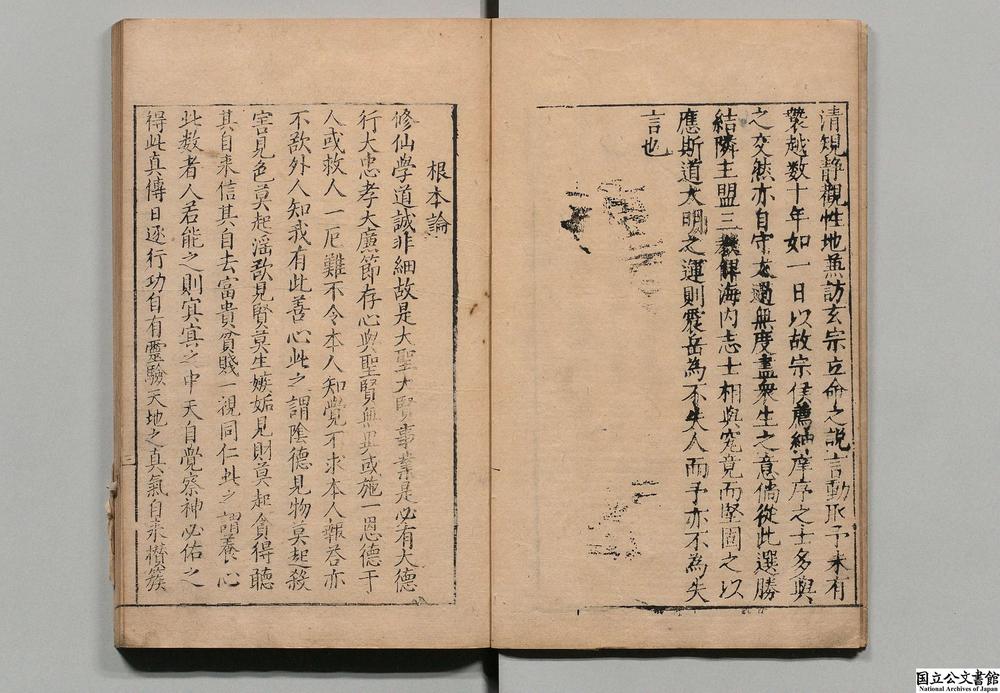 清規靜觀性地兼訪玄宗立命之説言動耴予未有
褻越数十年如一日以故宗侯薦紳庠序之士多與
之交然亦自守大道無度盡衆生之意倘從此選勝
結隣主盟三教與海内志士相與究竟而堅固之以
應斯道大明之運則霞岳為不失人而予亦不為失
言也
根本論
修仙學道誠非細故是大聖大賢事業是必有大德
行大忠孝大廉節存心與聖賢無異或施一恩德于
人或救人一厄難不令本人知覺不求本人報荅亦
不欲外人知我有此善心此之謂陰德見物莫起殺
害見色莫起滛欲見賢莫生嫉妬見財莫起貪得聽
其自来信其自去富貴貧賤一視同仁此之謂養心
此数者人若能之則㝠㝠之中天自覺察神必佑之
得此真傳日逐行功自有靈驗天地之真氣自来攢簇
三
国立公文書館
National Archives of Japan